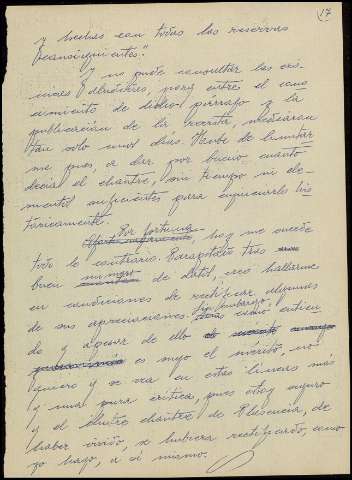 17
y hechas con todas las reservas
consiguientes".
Y no pude consultar las
aludidas, pues entre el cono
cimiento de dicho párrafo y la
publicación de la revista, mediaron
tan solo unos días. Hube de limitar
me pues a dar por bueno cuanto
decía el chantre, sin tiempo ni ele
mentos suficientes para enjuiciarlo his
tóricamente.
Por fortuna
hoy me sucede
todo lo contrario. Recopilados tras
buen número de datos, creo hallarme
en condiciones de rectificar algunas
de sus apreciaciones. Sin embargo,
como entien
do y a pesar de ello
es suyo el mérito, no
quiero y se vea en estas líneas más
y una pura crítica, pues estoy seguro
y el ilustre chantre de Plasencia, de
haber vivido, se hubiera rectificado, como
yo hago, a sí mismo.